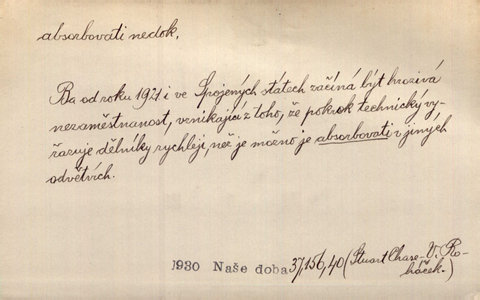 absorbovati nedok.
Ba od roku 1921 i ve Spojených státech začíná být hrozivá
nezaměstnanost, vznikající z toho, že pokrok technický vy-
řazuje dělníky rychleji, než je možno je absorbovati v jiných
odvětvích.
1930 Naše doba 37,156,40 (Stuart Chase-V. Ro-
háček.)